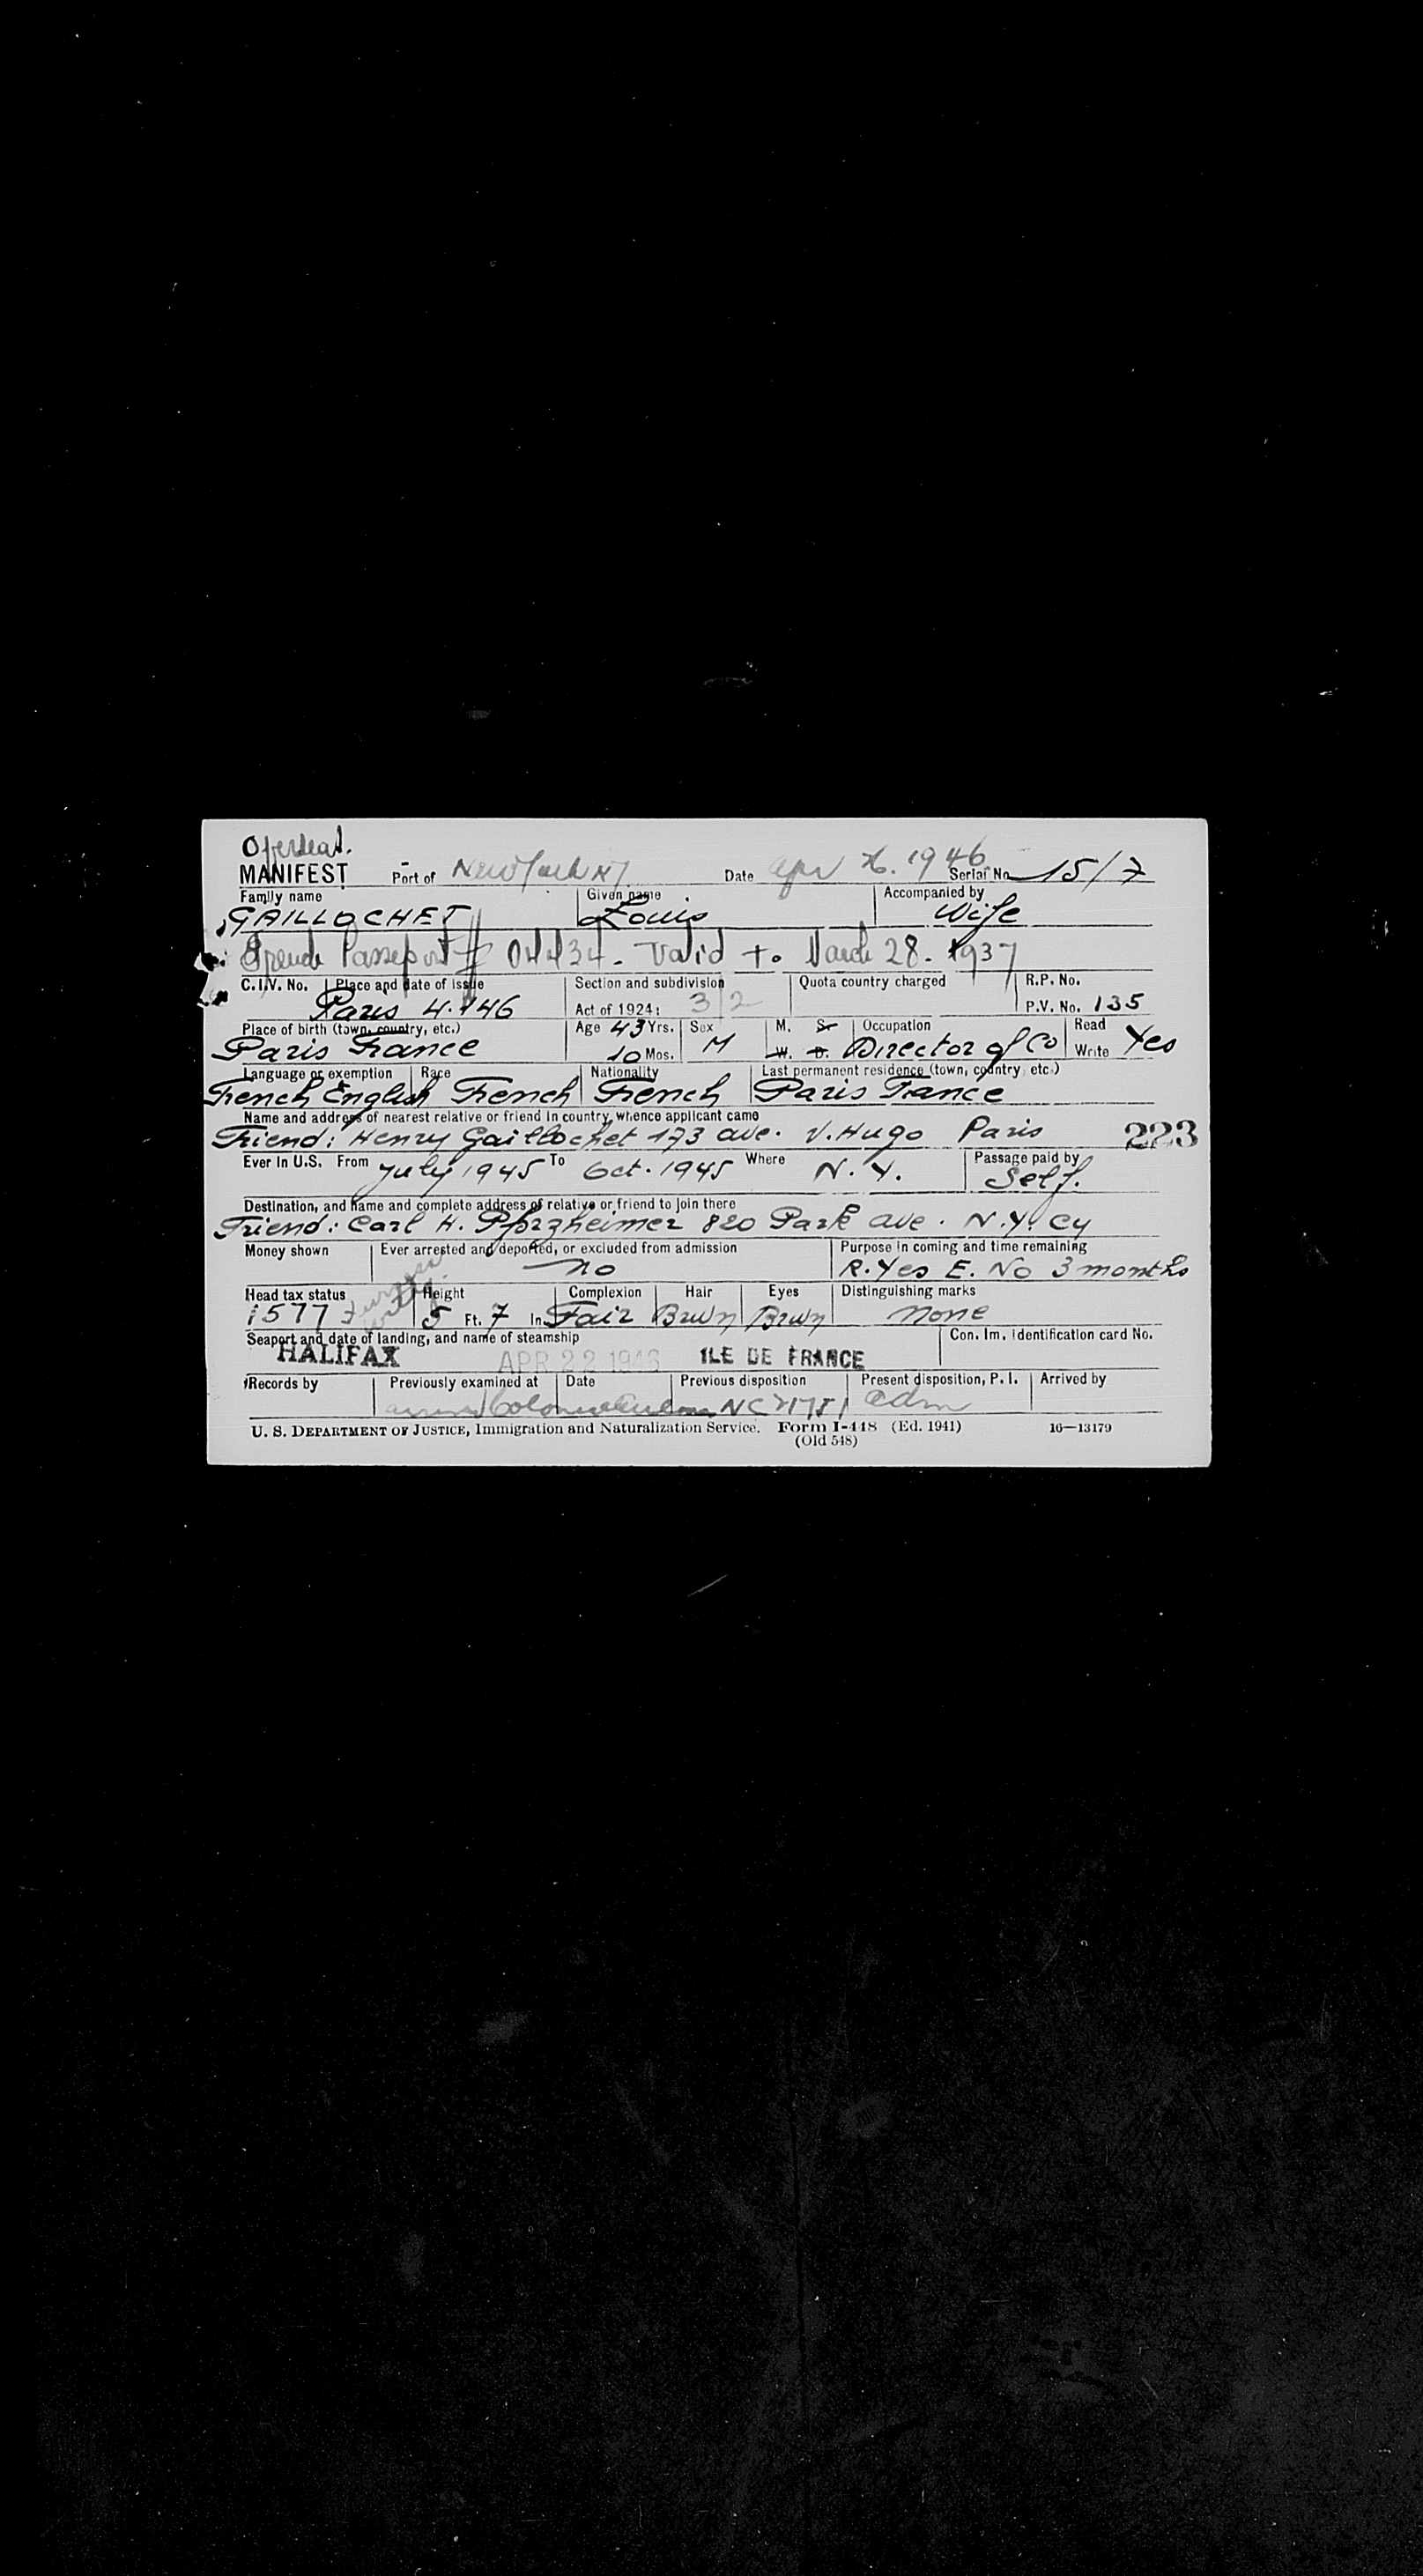 MANIFEST Port of New York NY Date Apr 26. 1946 Serial No. 15/7
Family name Given name Accompanied by
GAILLOCHET Louis Wife
French Passeport # 04434 - Valid to March 28. 1937
C.I.V. No. Place and date of issue Section and subdivision Quota country charged R.P. No.
Paris 4. 146 Act of 1924: 3/2 P.V. No. 135
Place of birth (town, country, etc.) Age 43 Yrs. Sex M. S. Occupation Read
Paris France 10 Mos. M W. D. Director of Co Write Yes
Language or exemption Race Nationality Last permanent residence (town, country, etc.)
French English French French Paris France
Name and address of nearest relative or friend in country whence applicant came
Friend: Henry Gaillochet 173 ave. V. Hugo Paris 223
Ever in U.S. From July 1945 To Oct. 1945 Where N.Y. Passage paid by
Self.
Destination, and name and complete address of relative or friend to join there
Friend: Carl H. Pforzheimer 820 Park ave. N.Y. Cy
Money shown Ever arrested and deported, or excluded from admission Purpose in coming and time remaining
no R. Yes E. No 3 months
Head tax status Height Complexion Hair Eyes Distinguishing marks
1577 5 Ft. 7 In. Fair Brwn Brwn none
Seaport and date of landing, and name of steamship Con. Im. Identification card No.
HALIFAX APR 22 1946 ILE DE FRANCE
Records by Previously examined at Date Previous disposition Present disposition, P. I. Arrived by
adm
U. S. DEPARTMENT OF JUSTICE, Immigration and Naturalization Service. Form I-448 (Ed. 1941) 16—13179
(Old 548)